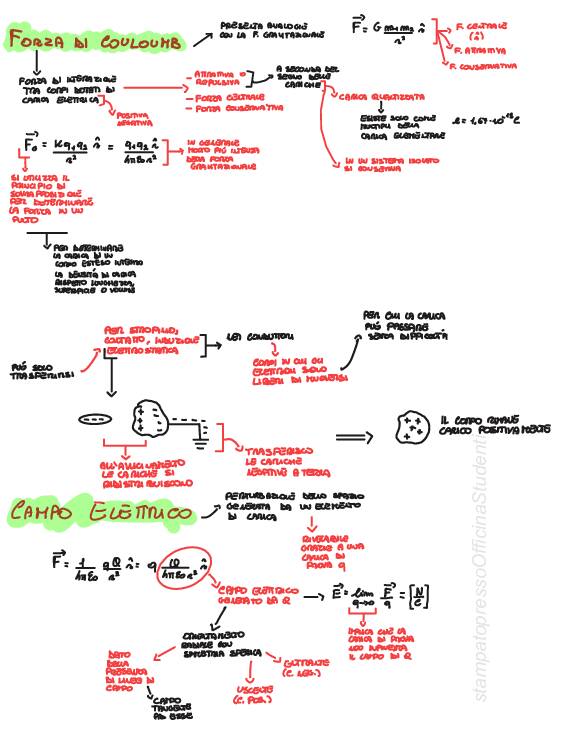 FORZA DI COULOUMB
PRESENTA ANALOGIE
CON LA F. GRAVITAZIONALE
F = G m1 m2 / r² r̂
F. CENTRALE
(r̂)
F. ATTRATTIVA
F. CONSERVATIVA
FORZA DI INTERAZIONE
TRA CORPI DOTATI DI
CARICA ELETTRICA
POSITIVA
NEGATIVA
- ATTRATTIVA O
REPULSIVA
- FORZA CENTRALE
- FORZA CONSERVATIVA
A SECONDA DEL
SEGNO DELLE
CARICHE
CARICA QUANTIZZATA
ESISTE SOLO COME
MULTIPLI DELLA
CARICA ELEMENTARE
IN UN SISTEMA ISOLATO
SI CONSERVA
IN GENERALE
MOLTO PIÙ INTENSA
DELLA FORZA
GRAVITAZIONALE
SI UTILIZZA IL
PRINCIPIO DI
SOVRAPPOSIZIONE
PER DETERMINARE
LA FORZA IN UN
PUNTO
PER DETERMINARE
LA CARICA DI UN
CORPO ESTESO INTEGRO
LA DENSITÀ DI CARICA
RISPETTO LUNGHEZZA,
SUPERFICIE O VOLUME
PUÒ SOLO
TRASFERIRSI
PER STROFINIO,
CONTATTO, INDUZIONE
ELETTROSTATICA
NEI CONDUTTORI
CORPI IN CUI GLI
ELETTRONI SONO
LIBERI DI MUOVERSI
PER CUI LA CARICA
PUÒ PASSARE
SENZA DIFFICOLTÀ
ALL'AVVICINAMENTO
LE CARICHE SI
RIDISTRIBUISCONO
TRASFERISCO
LE CARICHE
NEGATIVE A TERRA
IL CORPO RIMANE
CARICO POSITIVAMENTE
CAMPO ELETTRICO
PERTURBAZIONE DELLO SPAZIO
GENERATA DA UN ELEMENTO
DI CARICA
RILEVABILE
GRAZIE A UNA
CARICA DI
PROVA q
F = 1/4πε0 qQ/r² r̂ = q Q/4πε0 r² r̂
CAMPO ELETTRICO
GENERATO DA Q
E = lim q→0 F/q = [N/C]
IMPLICA CHE LA
CARICA DI PROVA
NON INFLUENZA
IL CAMPO DI Q
ANDAMENTO
RADIALE CON
SIMMETRIA SFERICA
DETTO
DELLA
PRESENZA
DI LINEE DI
CAMPO
CAMPO
TANGENTE
AD ESSE
USCENTE
(C. POS.)
ENTRANTE
(C. NEG.)
stampatopressoOfficinaStudenti